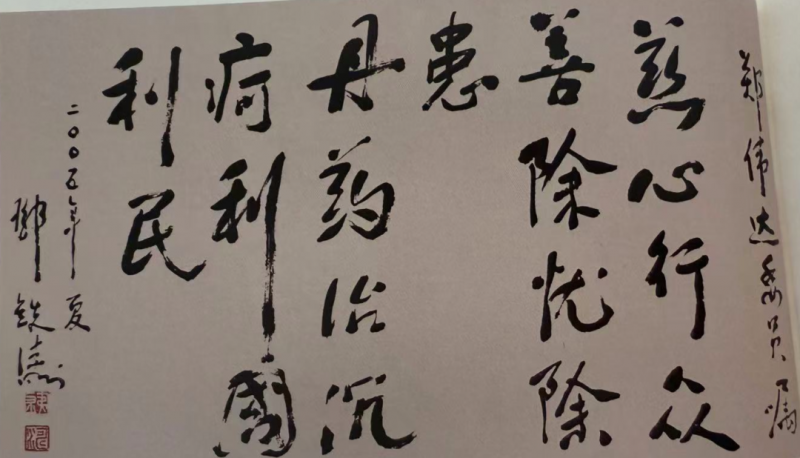 郑伟达委员嘱
慈心行众
善除忧除
患
丹药治沉
疴利國
利民
二〇〇五年夏
邓铁涛